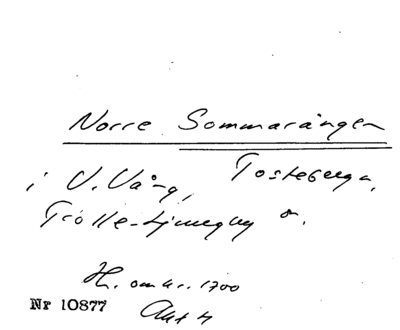 Norre Sommarängen
i V. Vång, Tosteberga,
Trolle-Ljungby sn.
H. omkr. 1700
Nr 10877 Akt 4